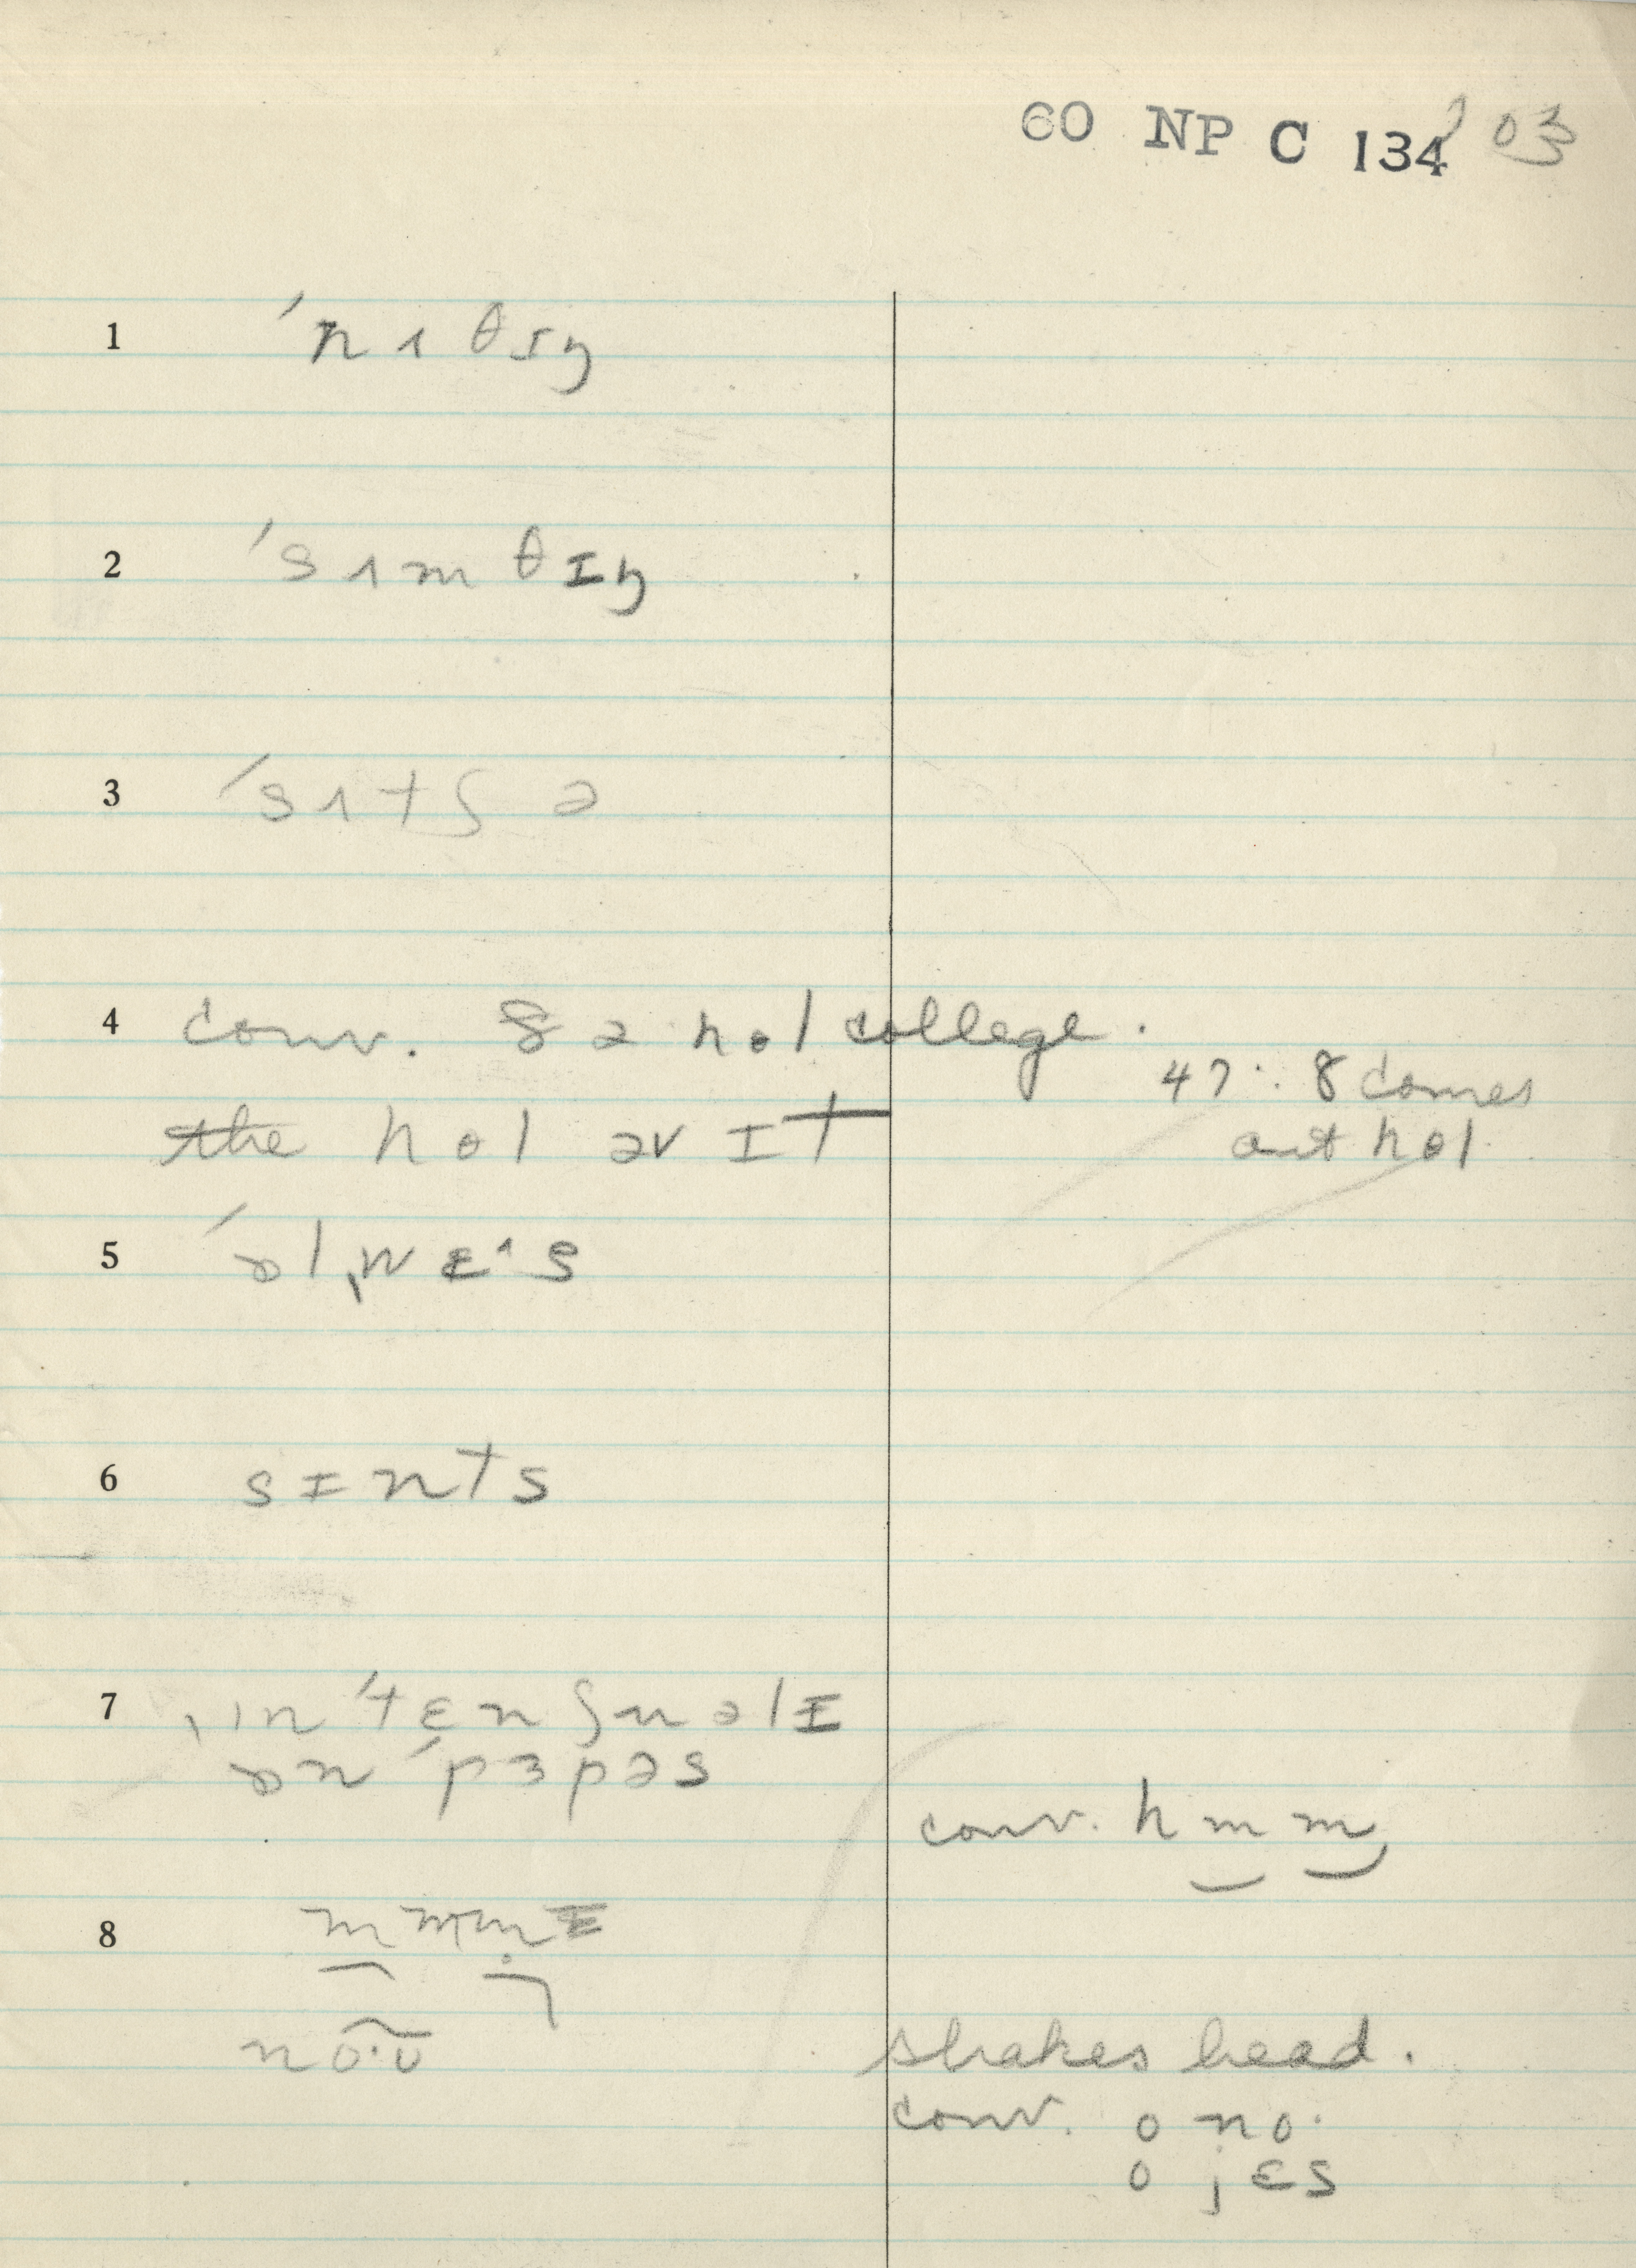 60 NP C 134 203
1 ˈnʌθɪŋ
2 ˈsʌmθɪŋ
3 ˈsʌtʃ ə
4 conv. ðə hɵl college.
the hɵl əv ɪt
47:8 comes
out hɵl
5 ˈɔlˌwɛˑs
6 sɪnts
7 ˌɪnˈtɛnʃnəlɪ
ɔn ˈpɜpəs
conv. hmm
8
noˑʊ
shakes head.
conv. o no.
o jɛs